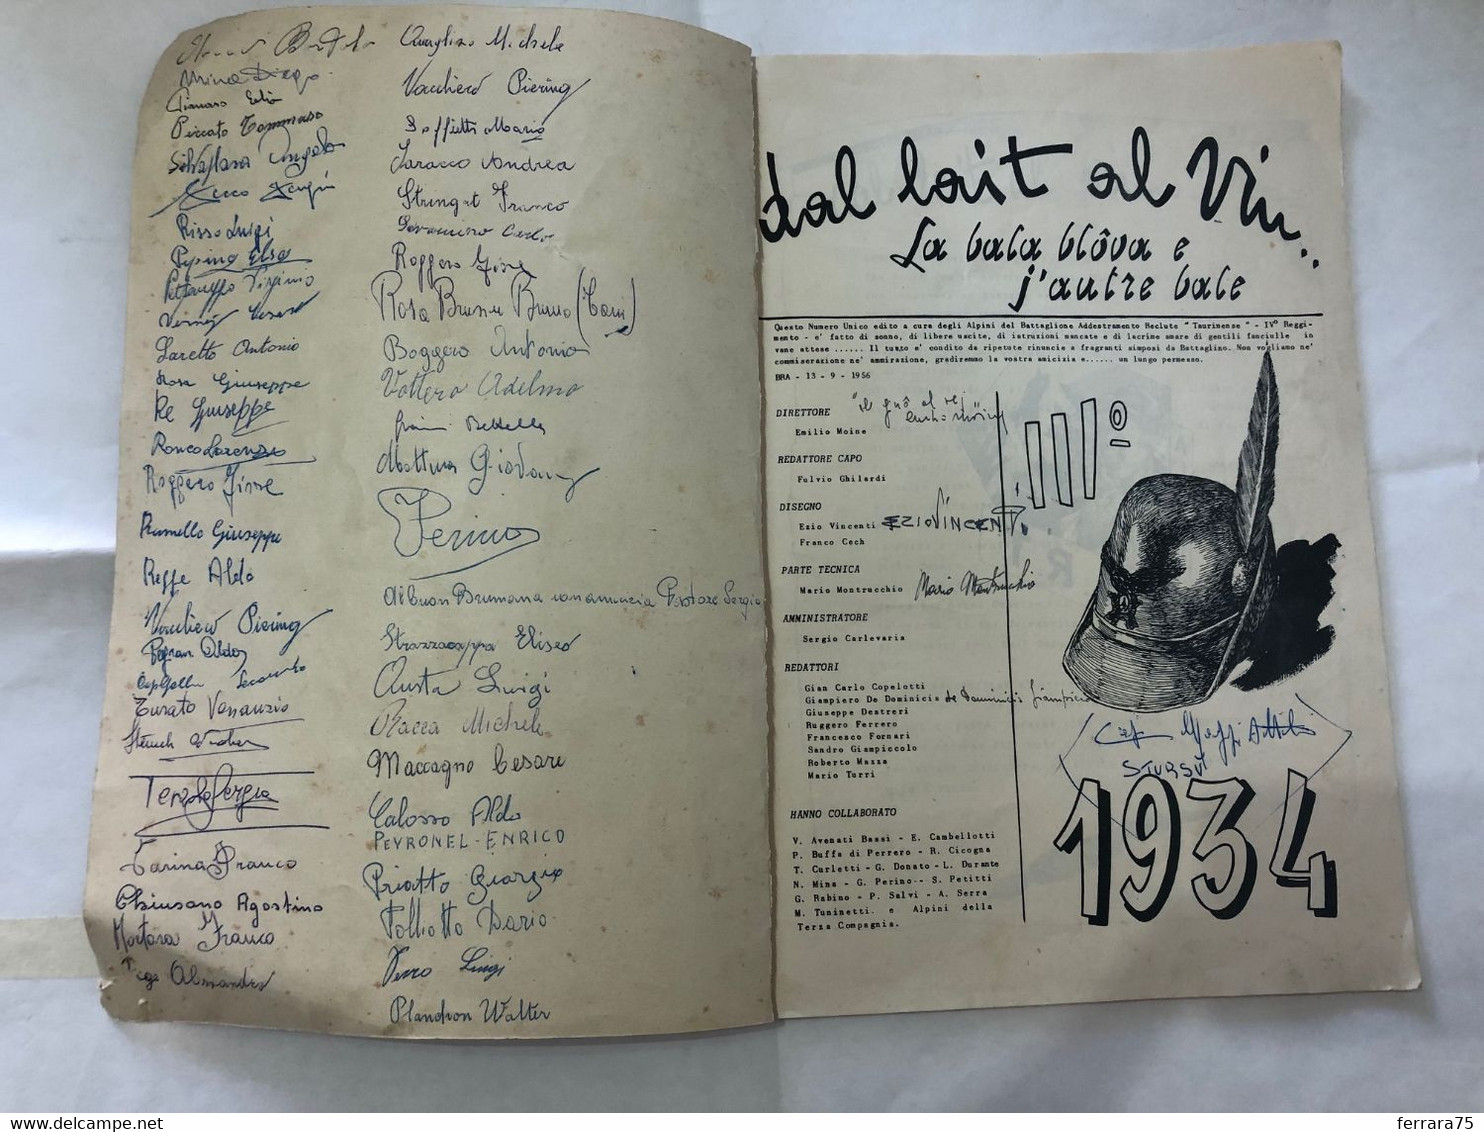 Mina Diego
Pianaro Elio
Piccato Tommaso
Angelo
Risso Luigi
Pepino Elso
Virginio
Laretto Antonio
Rosa Giuseppe
Re Giuseppe
Ronco Lorenzo
Roggero
Ramello Giuseppe
Reffe Aldo
Vacchiero Piering
Aldo
Turato Venanzio
Sergio
Farina Franco
Chiusano Agostino
Mortara Franco
Quaglino Michele
Vacchiero Piering
Soffietti Mario
Saracco Andrea
Stringat Franco
Carlo
Roggero
Rosa Brusin Bruno
Boggero Antonio
Vottero Adelmo
Mattina
Perino
Strazzacappa Eliseo
Austa Luigi
Racca Michele
Maccagno Cesare
Calosso Aldo
PEYRONEL-ENRICO
Priotto Giorgio
Folliotto Dario
Luigi
Plandron Walter
dal lait al Vin...
La bala blôva e
j'autre bale
Questo Numero Unico edito a cura degli Alpini del Battaglione Addestramento Reclute "Taurinense" - IV° Reggi-
mento - e' fatto di sonno, di libere uscite, di istruzioni mancate e di lacrime amare di gentili fanciulle in
vane attese ...... Il tutto e' condito da ripetute rinuncie a fragranti simposi da Battaglino. Non vogliamo ne'
commiserazione ne' ammirazione, gradiremmo la vostra amicizia e...... un lungo permesso.
BRA - 13 - 9 - 1956
DIRETTORE
Emilio Moine
III°
REDATTORE CAPO
Fulvio Ghilardi
DISEGNO
Ezio Vincenti EZIO VINCENTI
Franco Cech
PARTE TECNICA
Mario Montrucchio Mario Montrucchio
AMMINISTRATORE
Sergio Carlevaria
REDATTORI
Gian Carlo Copelotti
Giampiero De Dominicis De Dominicis Giampiero
Giuseppe Destreri
Ruggero Ferrero
Francesco Fornari
Sandro Giampiccolo
Roberto Mazza
Mario Turri
STURSÚT
1934
HANNO COLLABORATO
V. Avenati Bassi - E. Cambellotti
P. Buffa di Perrero - R. Cicogna
T. Curletti - G. Donato - L. Durante
N. Mina - G. Perino -- S. Petitti
G. Rabino - P. Salvi - A. Serra
M. Tuninetti. e Alpini della
Terza Compagnia.
ferrara75